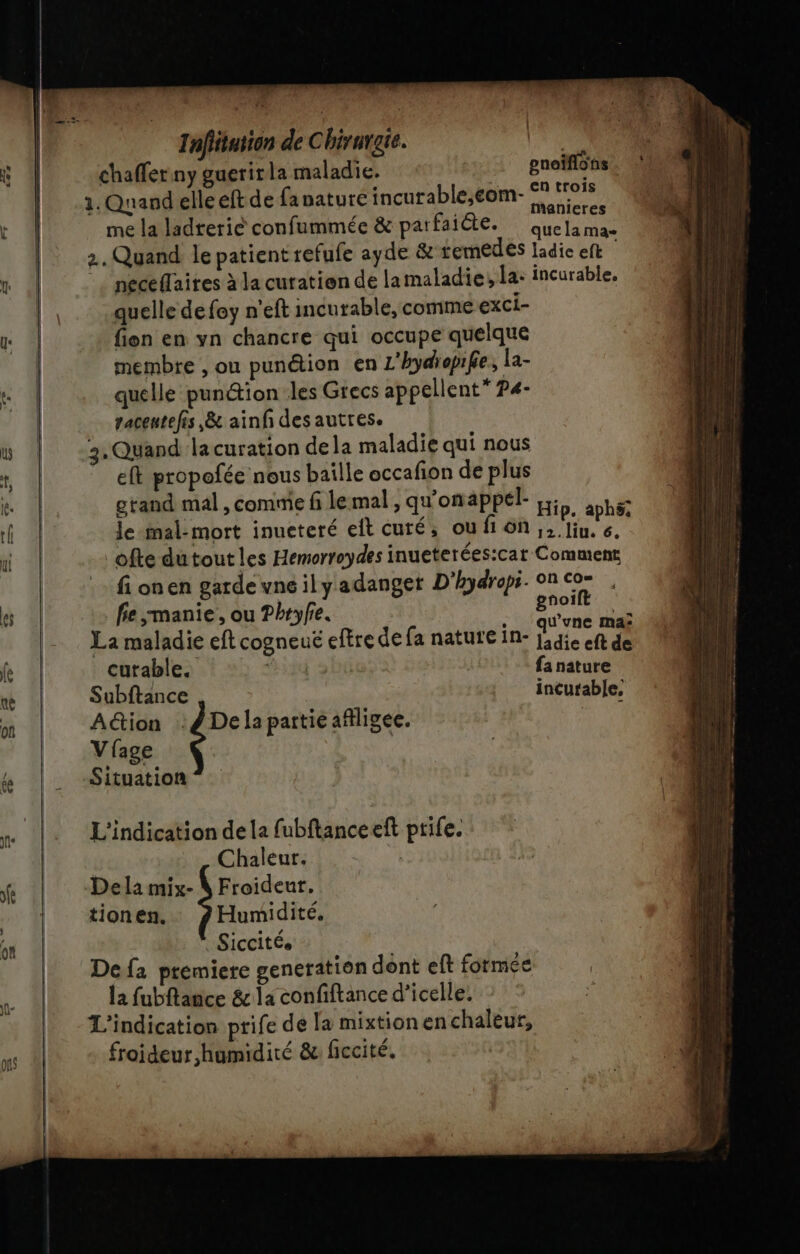 Inſtitution de Chirurgie.
chaſſer ny guerir la maladie.
1. Quand elle eſt de ſa nature incurable, com-
me la ladrerie conſummée & parfaicte.
2. Quand le patient refuſe ayde & remedes
neceſſaires à la curation de la maladie, la-
quelle de ſoy n'eſt incurable, comme exci-
ſion en vn chancre qui occupe quelque
membre, ou punction en L'hydropiſie, la-
quelle punction les Grecs appellent* Pa-
racenteſis, & ainſi des autres.
3. Quand la curation de la maladie qui nous
eſt propoſée nous baille occaſion de plus
grand mal, comme ſi le mal, qu'on appel-
le mal-mort inueteré eſt curé, ou ſi on
oſte du tout les Hemorroydes inueterées: car
ſi on en garde vne il y a danger D'hydropi-
ſie, manie, ou Phtyſie.
La maladie eſt cogneuë eſtre de ſa nature in-
curable.
gnoiſſons
en trois
manieres
que la ma-
ladie eſt
incurable.
Hip. aphs.
12. liu. 6.
Comment
on co-
gnoiſt
qu'vne ma-
ladie eſt de
ſa nature
incurable.
Subſtance
Action De la partie affligee.
Vſage
Situation
L'indication de la ſubſtance eſt priſe.
Chaleur.
De la mix- Froideur.
tion en. Humidité.
Siccité.
De ſa premiere generation dont eſt formée
la ſubſtance & la conſiſtance d'icelle.
L'indication priſe de la mixtion en chaleur,
froideur, humidité & ſiccité.